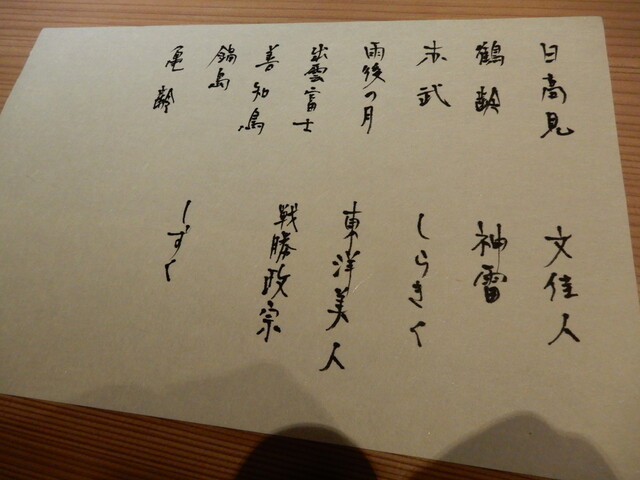 日高見
鶴齢
赤武
雨後の月
出雲富士
善知鳥
鍋島
亀齢
文佳人
神雷
しらぎく
東洋美人
戦勝政宗
しずく